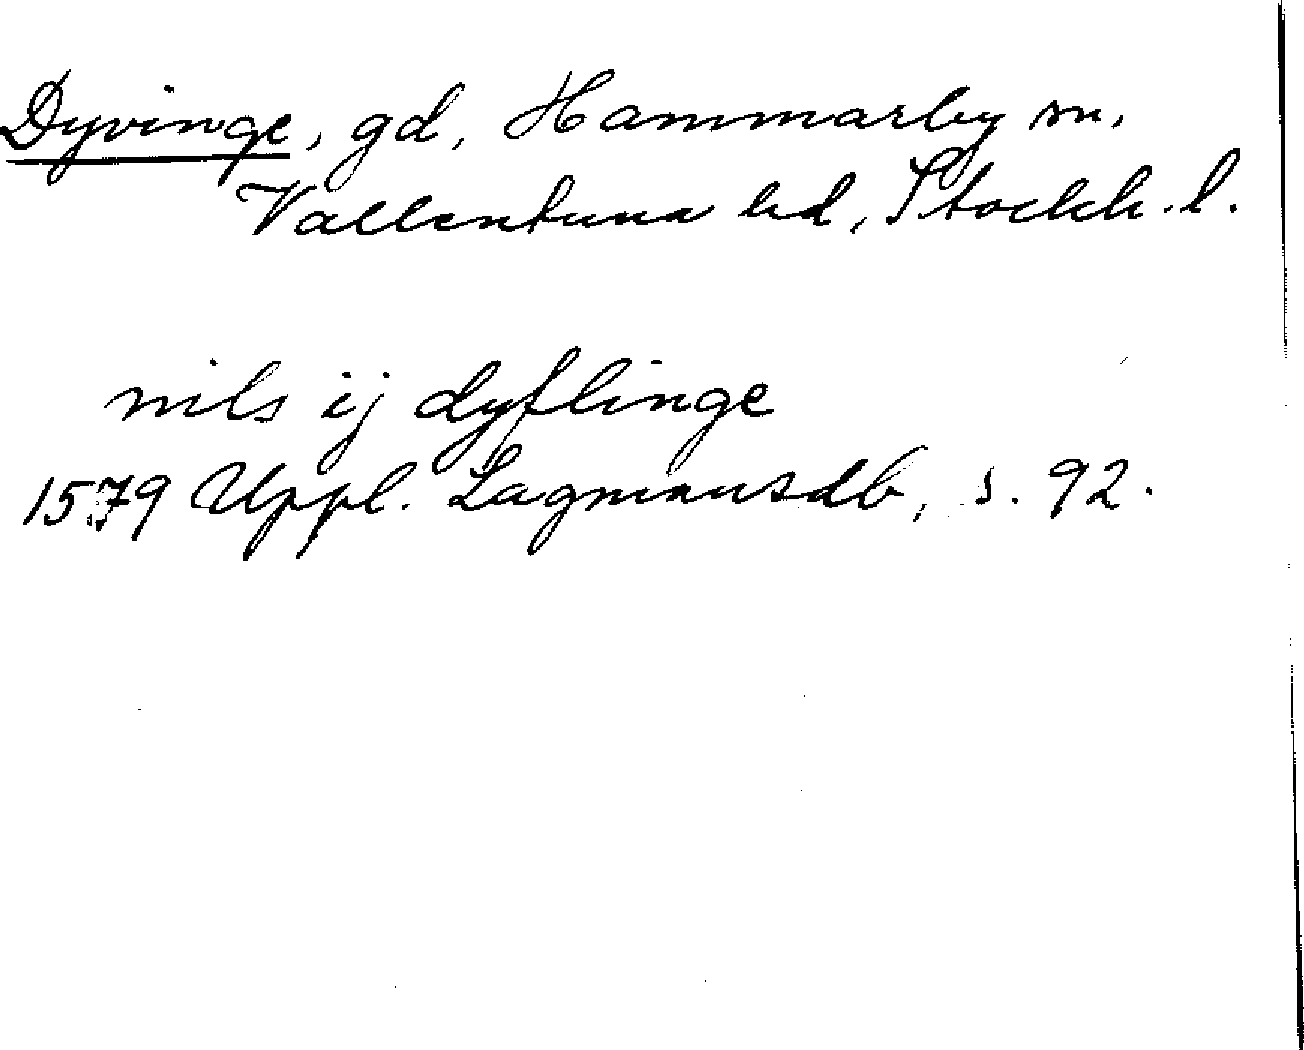 Dyvinge, gd, Hammarby sn,
Vallentuna hd, Stockh. l.
nils ij dyflinge
1579 Uppl. Lagmansdb, s. 92.